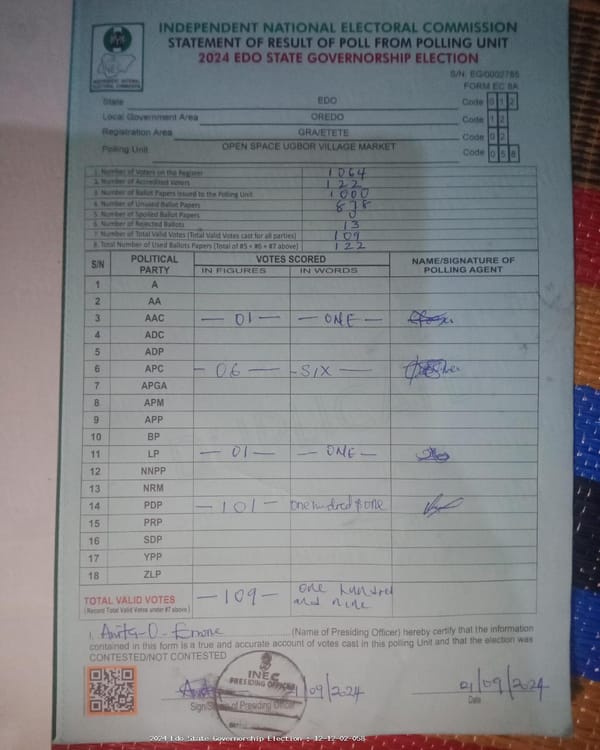 INDEPENDENT NATIONAL ELECTORAL COMMISSION
STATEMENT OF RESULT OF POLL FROM POLLING UNIT
2024 EDO STATE GOVERNORSHIP ELECTION
INEC
INDEPENDENT NATIONAL ELECTORAL COMMISSION
S/N: EG/0002785
FORM EC 8A
State EDO Code 0 1 2
Local Government Area OREDO Code 1 2
Registration Area GRA/ETETE Code 0 2
Polling Unit OPEN SPACE UGBOR VILLAGE MARKET Code 0 5 8
1. Number of Voters on the Register 1064
2. Number of Accredited Voters 122
3. Number of Ballot Papers issued to the Polling Unit 1000
4. Number of Unused Ballot Papers 878
5. Number of Spoiled Ballot Papers 0
6. Number of Rejected Ballots 13
7. Number of Total Valid Votes (Total Valid Votes cast for all parties) 109
8. Total Number of Used Ballots Papers (Total of #5 + #6 + #7 above) 122
S/N POLITICAL PARTY VOTES SCORED NAME/SIGNATURE OF POLLING AGENT
IN FIGURES IN WORDS
1 A
2 AA
3 AAC — 01 — — ONE —
4 ADC
5 ADP
6 APC — 06 — - SIX —
7 APGA
8 APM
9 APP
10 BP
11 LP — 01 — — ONE —
12 NNPP
13 NRM
14 PDP — 101 — one hundred & one
15 PRP
16 SDP
17 YPP
18 ZLP
TOTAL VALID VOTES — 109 — one hundred and nine
(Record Total Valid Votes under #7 above)
I, (Name of Presiding Officer) hereby certify that the information
contained in this form is a true and accurate account of votes cast in this polling Unit and that the election was
CONTESTED/NOT CONTESTED
INEC
PRESIDING OFFICER
/09/2024 21/09/2024
Sign/Stamp of Presiding Officer Date
2024 Edo State Governorship Election : 12-12-02-058